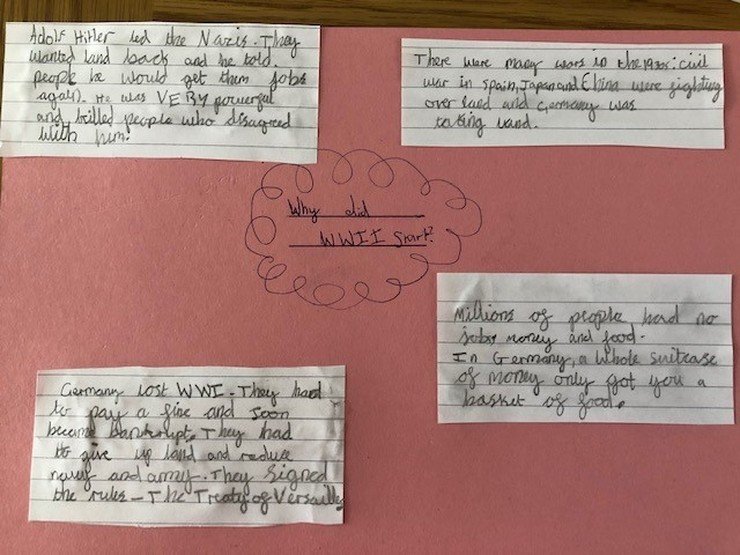 Adolf Hitler led the Nazis. They
wanted land back and he told
people he would get them jobs
again. He was VERY powerful
and killed people who disagreed
with him.
There were many wars in the 1930s: civil
war in Spain, Japan and China were fighting
over land and Germany was
taking land.
Why did
WWII start?
Millions of people had no
jobs, money and food.
In Germany, a whole suitcase
of money only got you a
basket of food.
Germany lost WWI. They had
to pay a fine and soon
became bankrupt. They had
to give up land and reduce
navy and army. They signed
the rules - The Treaty of Versailles